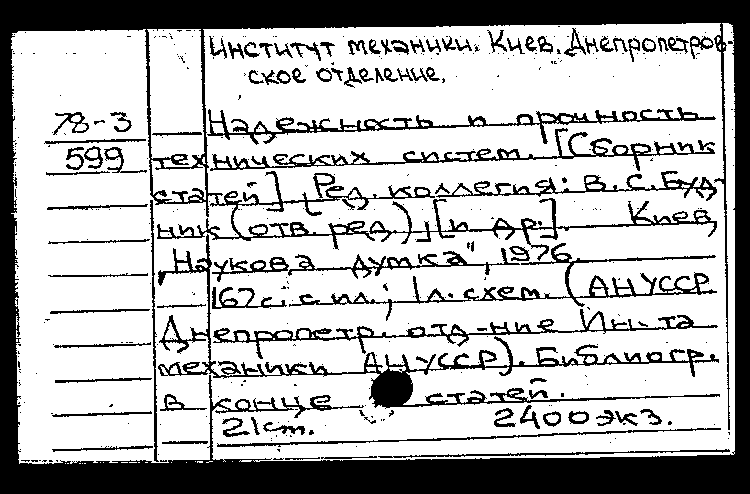 Институт механики. Киев. Днепропетров-
ское отделение.
78-3 Надежность и прочность
599 технических систем. [Сборник
статей]. Ред. коллегия: В.С. Буд-
ник (отв. ред.), [и др.]. Киев,
„Наукова думка", 1976.
167 с. с ил.; 1 л. схем. (АН УССР
Днепропетр. отд-ние Ин-та
механики АН УССР). Библиогр.
в конце статей.
21 cm. 2400 экз.